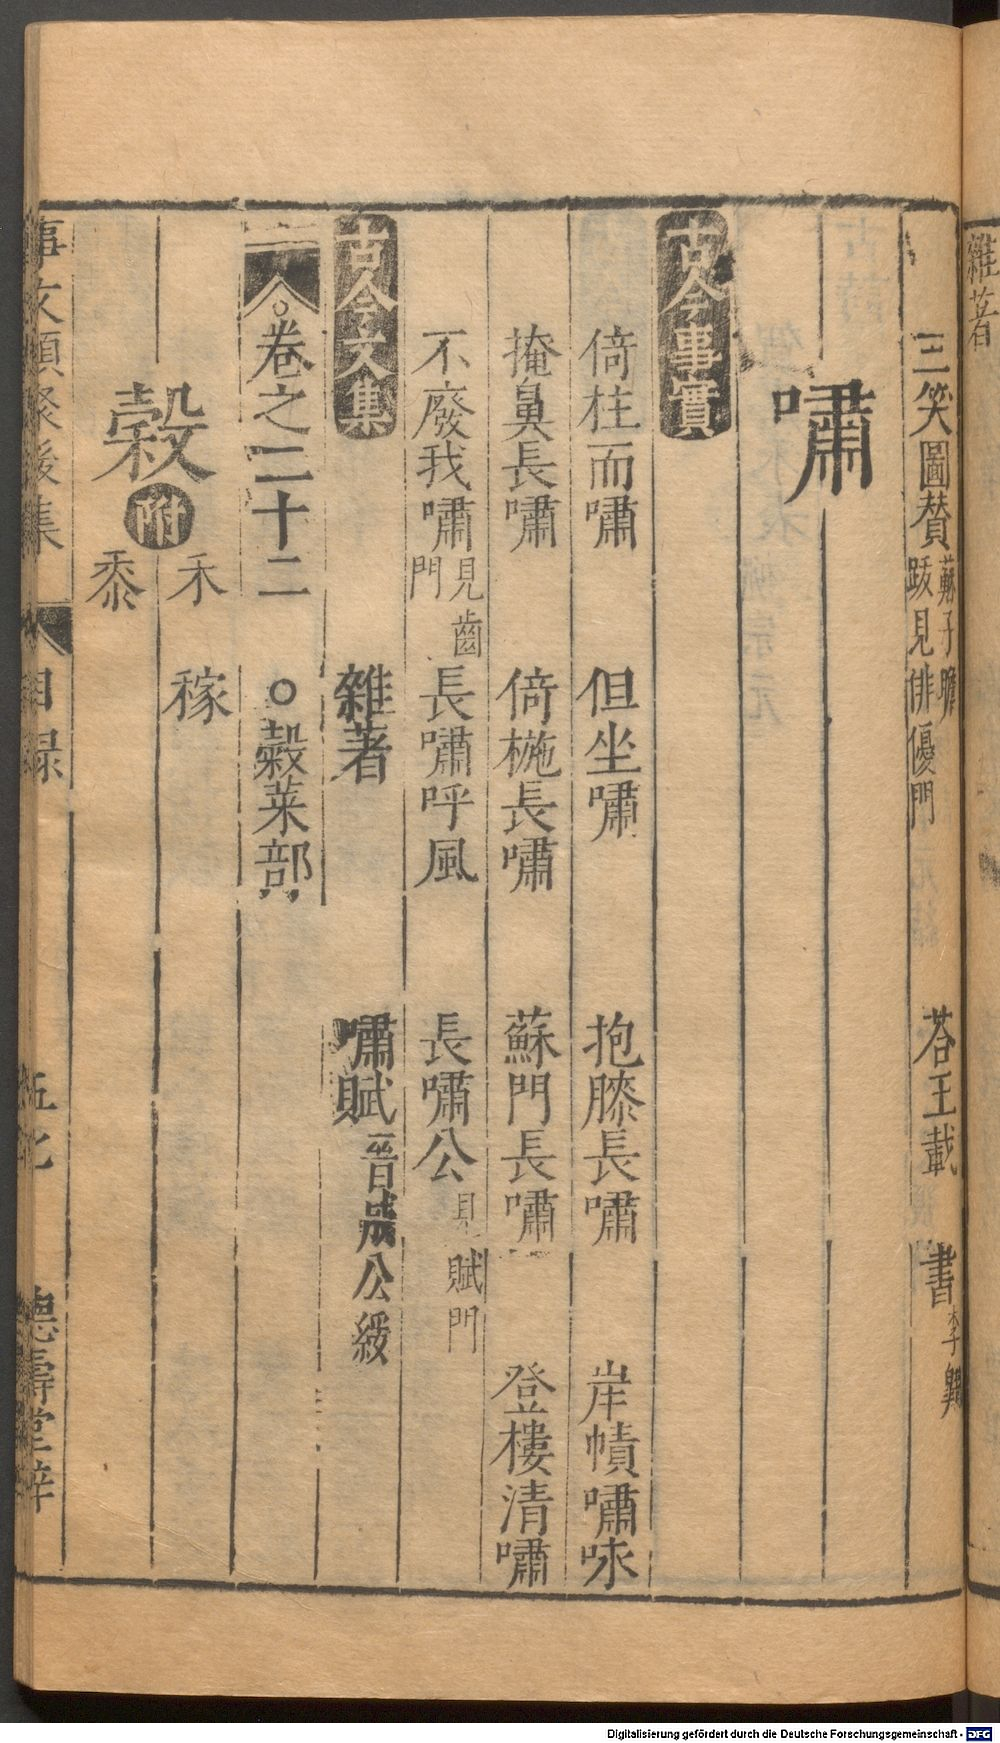 雜著
三笑圖賛 蘇子瞻 跋見俳優門 荅王載 書 李翺
嘯
古今事實
倚柱而嘯 但坐嘯 抱膝長嘯 岸幘嘯咏
掩鼻長嘯 倚柂長嘯 蘇門長嘯 登樓清嘯
不廢我嘯 見齒門 長嘯呼風 長嘯公 見賦門
古今文集 雜著 嘯賦 晋成公綏
卷之二十二 穀菜部
禾 稼
穀 附 黍
事文類聚後集 目録 五七 德壽堂梓
Digitalisierung gefördert durch die Deutsche Forschungsgemeinschaft - DFG